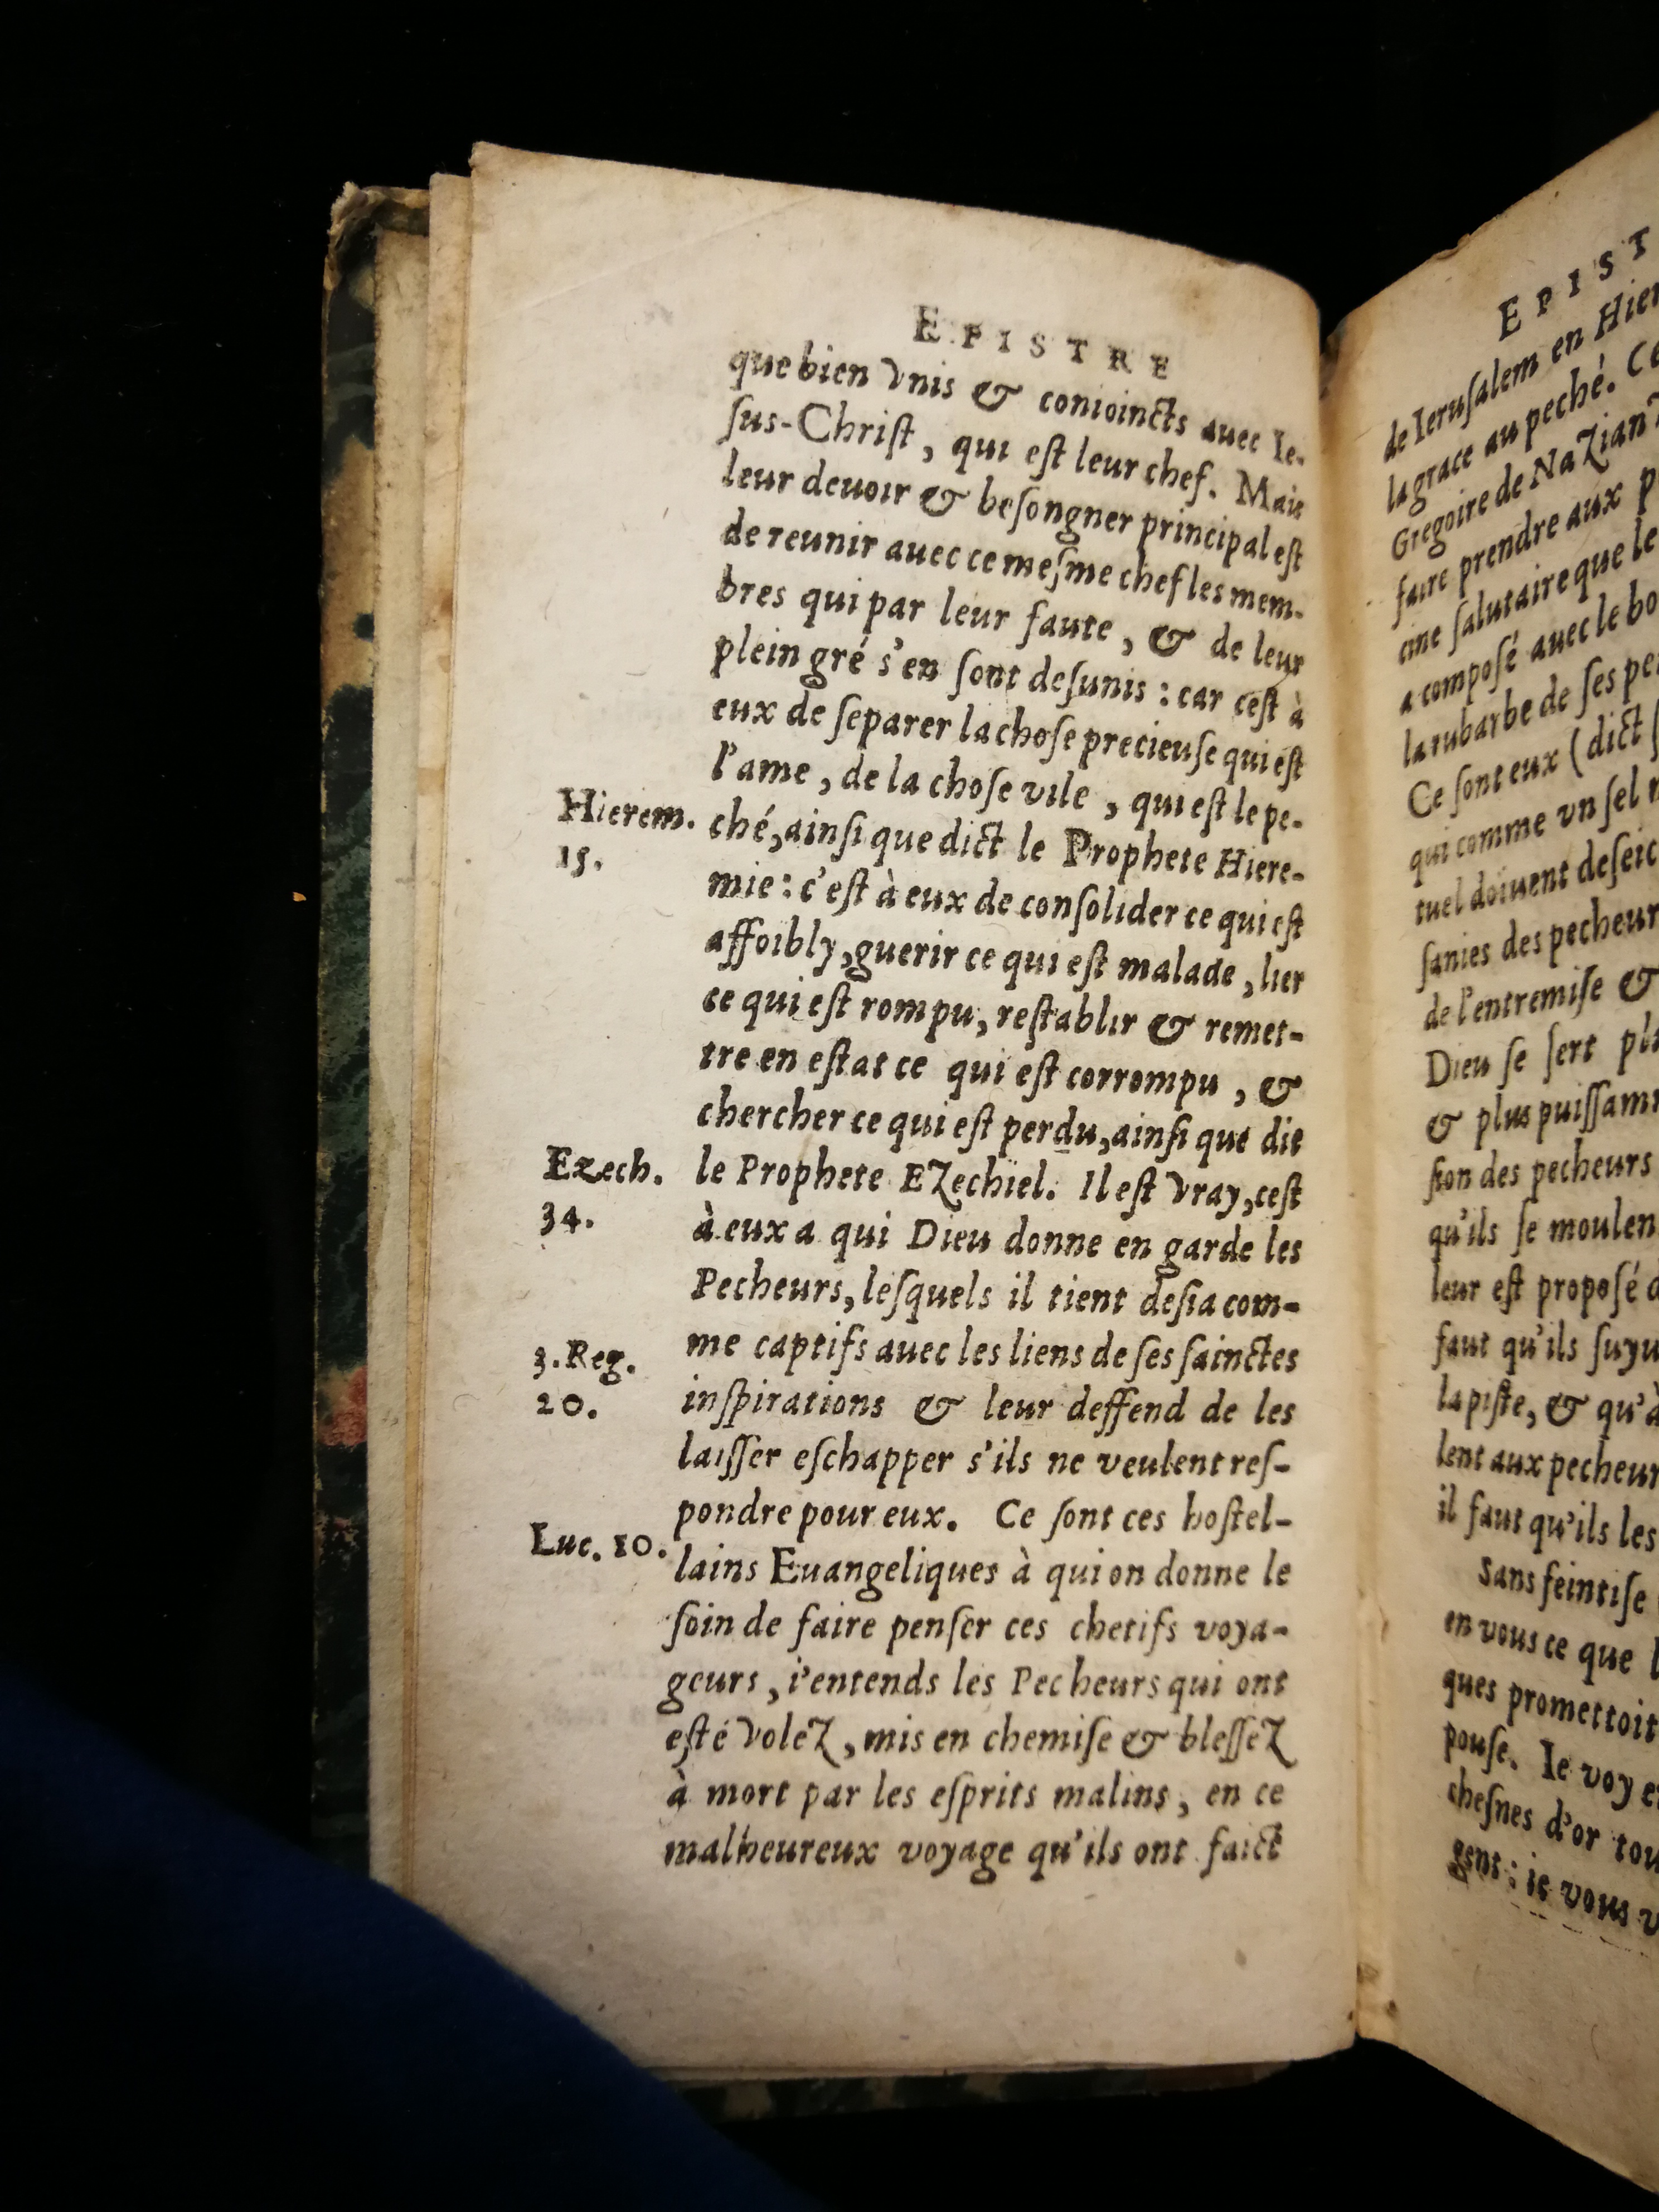 EPISTRE
que bien vnis & conioincts auec Ie-
ſus-Chriſt, qui eſt leur chef. Mais
leur deuoir & beſongner principal eſt
de reunir auec ce meſme chef les mem-
bres qui par leur faute, & de leur
plein gré s'en ſont deſunis : car ceſt à
eux de ſeparer la choſe precieuſe qui eſt
l'ame, de la choſe vile, qui eſt le pe-
Hierem.
15.
ché, ainſi que dict le Prophete Hiere-
mie : c'eſt à eux de conſolider ce qui eſt
affoibly, guerir ce qui eſt malade, lier
ce qui eſt rompu, reſtablir & remet-
tre en eſtat ce qui eſt corrompu, &
chercher ce qui eſt perdu, ainſi que dit
Ezech.
34.
le Prophete Ezechiel. Il eſt vray, ceſt
à eux a qui Dieu donne en garde les
Pecheurs, leſquels il tient deſia com-
3. Reg.
20.
me captifs auec les liens de ſes ſainctes
inſpirations & leur deffend de les
laiſſer eſchapper s'ils ne veulent reſ-
pondre pour eux. Ce ſont ces hoſtel-
Luc. 10.
lains Euangeliques à qui on donne le
ſoin de faire penſer ces chetifs voya-
geurs, i'entends les Pecheurs qui ont
eſté volez, mis en chemiſe & bleſſez
à mort par les eſprits malins, en ce
malheureux voyage qu'ils ont faict
EPIST
de Ieruſalem en
la grace au peché.
Gregoire de
faire prendre aux
cine ſalutaire que
a compoſé auec le
la rubarbe de ſes
Ce ſont eux (dict
qui comme vn ſel
tuel doiuent
ſanies des
de l'entremiſe &
Dieu ſe ſert
& plus
ſion des pecheurs
qu'ils ſe
leur eſt propoſé
faut qu'ils
la piſte, & qu'à
lent aux
il faut qu'ils les
Sans feintiſe
en vous ce que
ques promettoit
pouſe. Ie voy
cheſnes d'or
gent : ie vous